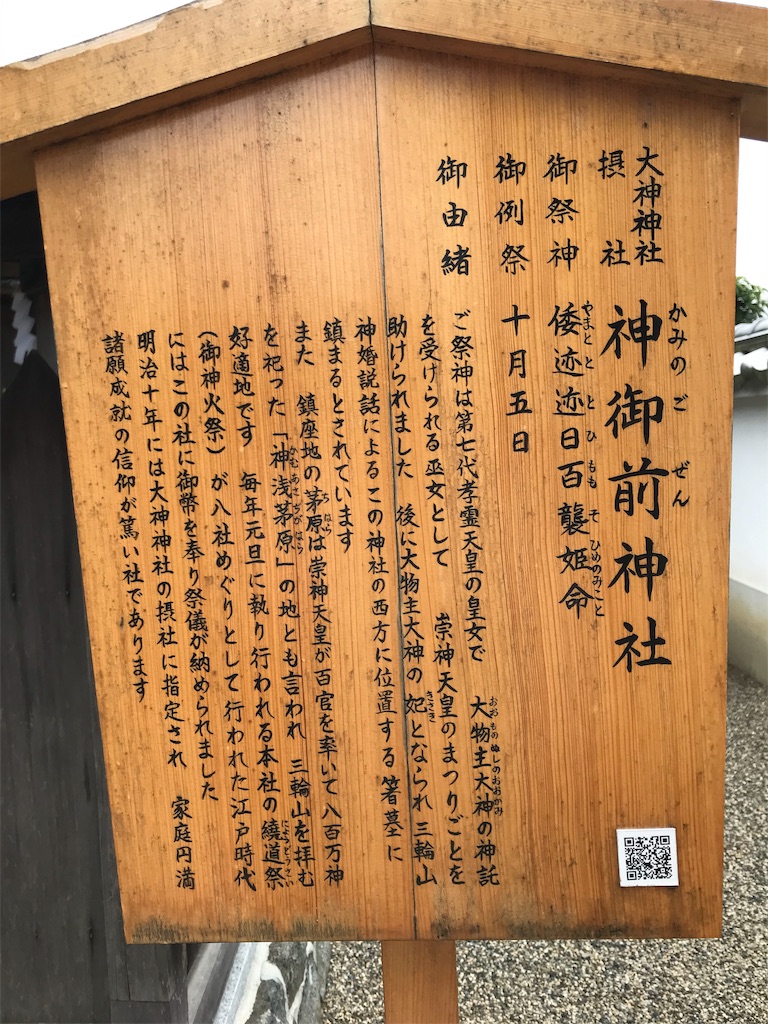 大神神社
摂社
神御前神社
かみのごぜん
御祭神 倭迹迹日百襲姫命
やまとととひももそひめのみこと
御例祭 十月五日
御由緒
ご祭神は第七代孝霊天皇の皇女で 大物主大神の神託
おおものぬしのおおかみ
を受けられる巫女として 崇神天皇のまつりごとを
助けられました 後に大物主大神の妃となられ三輪山
きさき
神婚説話によるこの神社の西方に位置する箸墓に
鎮まるとされています
また 鎮座地の茅原は崇神天皇が百官を率いて八百万神
ちはら
を祀った「神浅茅原」の地とも言われ 三輪山を拝む
かむあさぢがはら
好適地です 毎年元旦に執り行われる本社の繞道祭
にょうどうさい
(御神火祭)が八社めぐりとして行われた江戸時代
にはこの社に御幣を奉り祭儀が納められました
明治十年には大神神社の摂社に指定され 家庭円満
諸願成就の信仰が篤い社であります